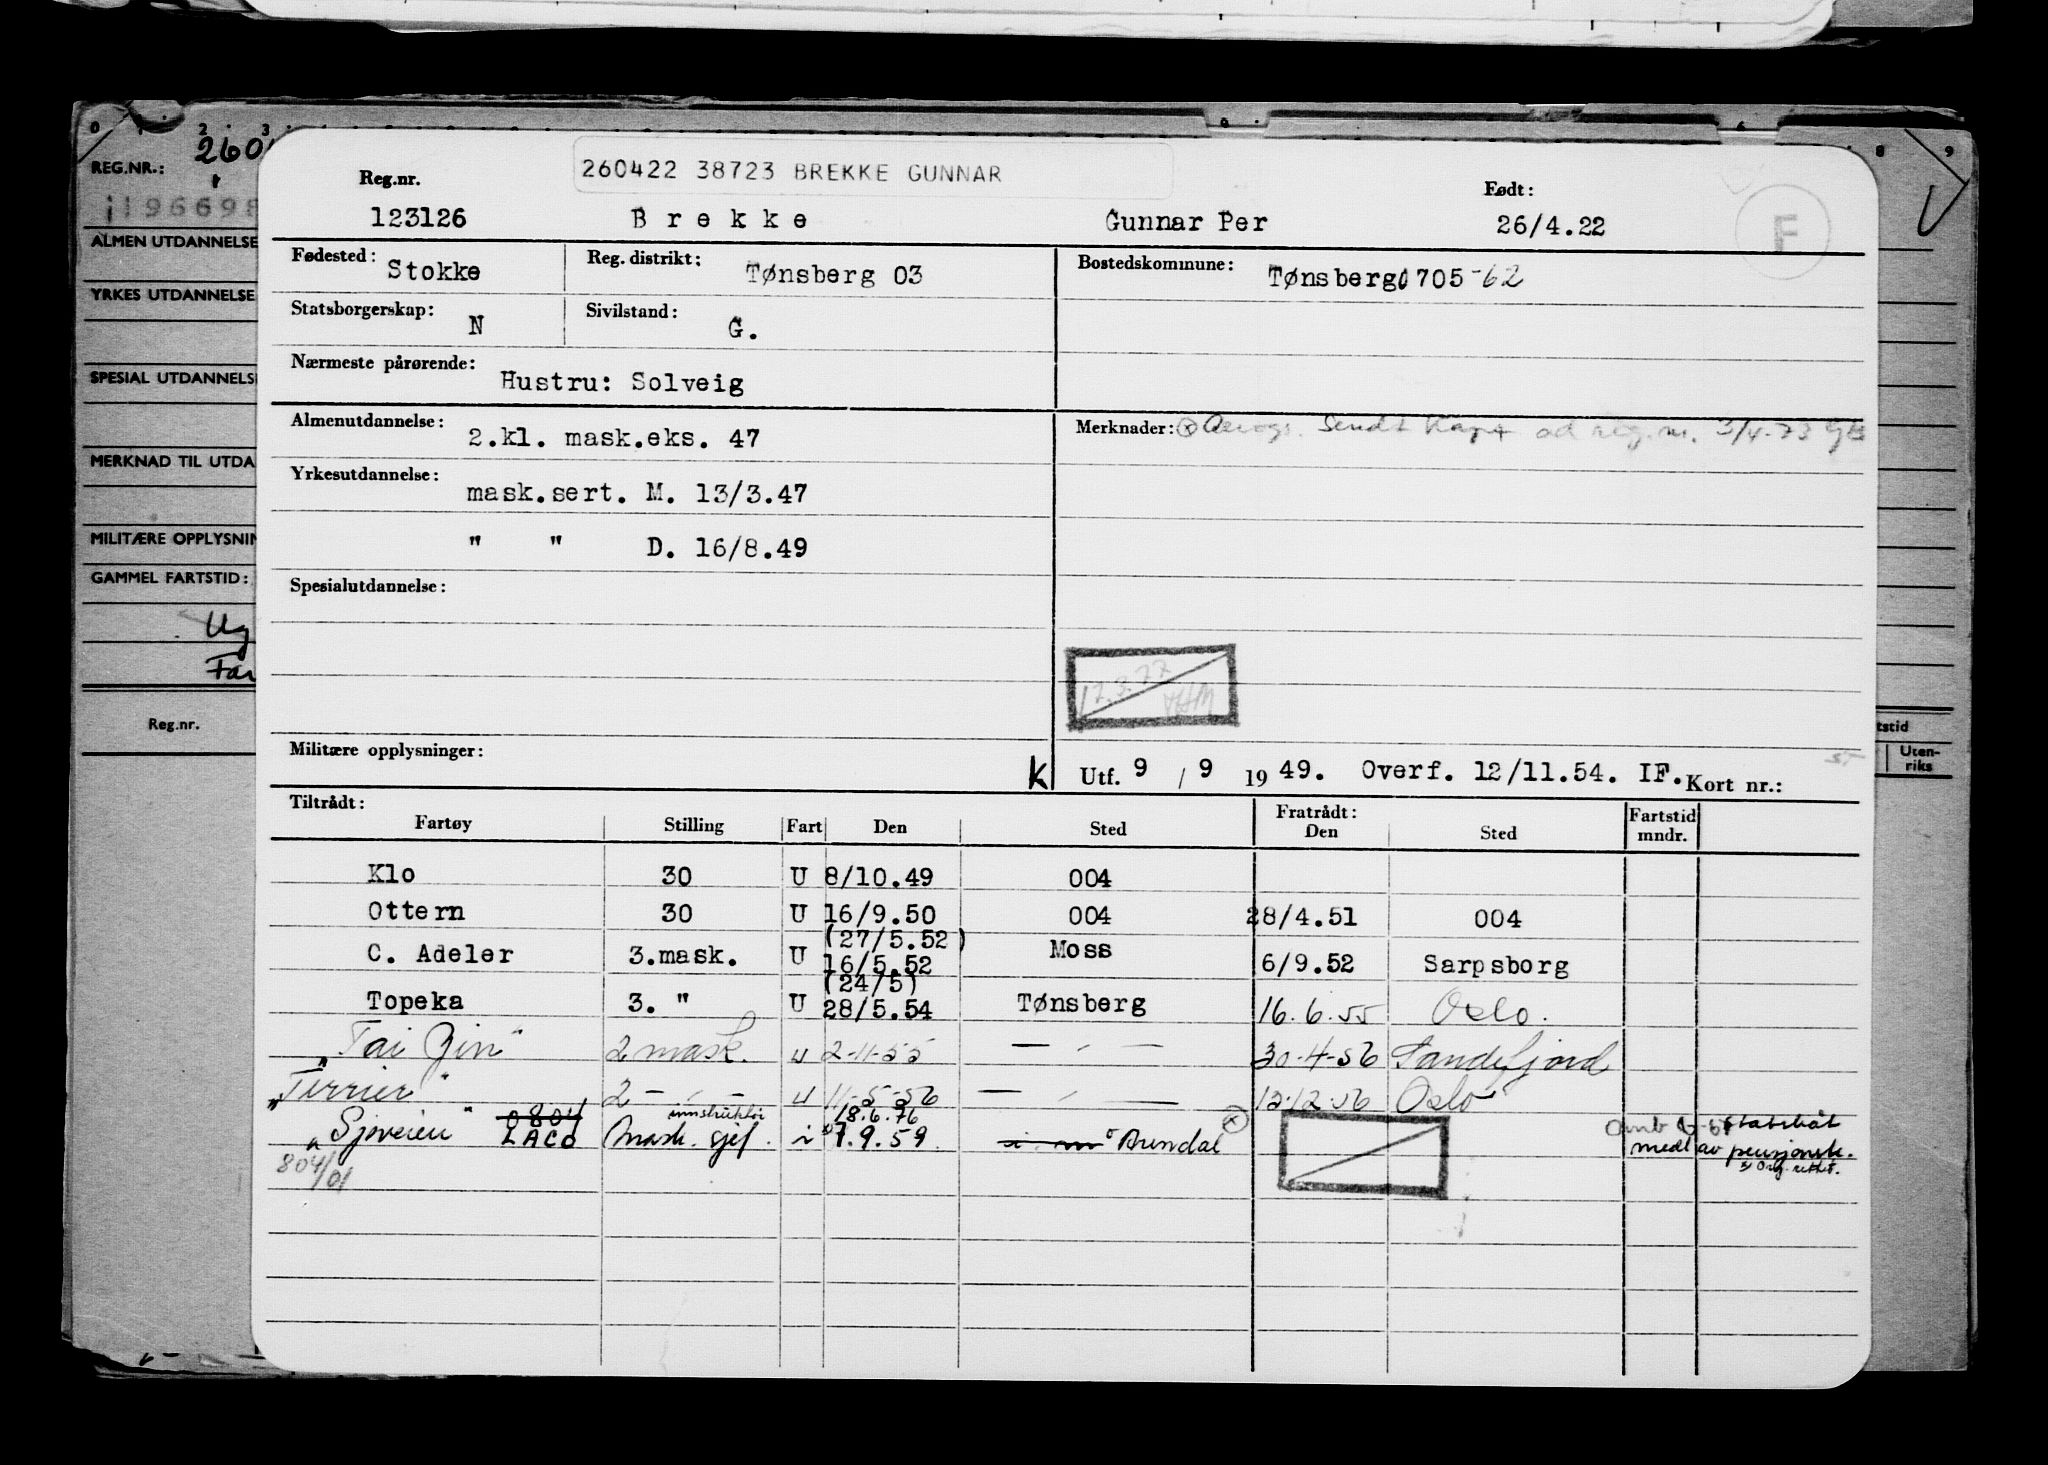 0 1 2 3 8 9
REG.NR.: 260
196698
ALMEN UTDANNELSE
YRKES UTDANNELSE
SPESIAL UTDANNELSE
MERKNAD TIL UTDA
MILITÆRE OPPLYSNIN
GAMMEL FARTSTID:
Reg.nr.
tstid
Uten-
riks
260422 38723 BREKKE GUNNAR
Reg.nr. Født:
123126 Brekke Gunnar Per 26/4.22 F
Fødested: Stokke Reg. distrikt: Tønsberg 03 Bostedskommune: Tønsberg 0705-62
Statsborgerskap: N Sivilstand: G.
Nærmeste pårørende: Hustru: Solveig
Almenutdannelse: 2.kl. mask.eks. 47 Merknader: Sendt kort reg.nr. 3/4-73
Yrkesutdannelse: mask.sert. M. 13/3.47
" " D. 16/8.49
Spesialutdannelse:
17.3.77
Militære opplysninger: K Utf. 9 / 9 19 49. Overf. 12/11.54. IF. Kort nr.:
Tiltrådt: Fratrådt: Fartstid
Fartøy Stilling Fart Den Sted Den Sted mndr.
Klo 30 U 8/10.49 004
Ottern 30 U 16/9.50 004 28/4.51 004
(27/5.52)
C. Adeler 3.mask. U 16/5.52 Moss 6/9.52 Sarpsborg
(24/5)
Topeka 3. " U 28/5.54 Tønsberg 16.6.55 Oslo.
"Tai Yin" 2 mask. u 2-11-55 — " — 30-4-56 Sandefjord
"Terrier" 2 - " - u 11-5-56 — " — 12.12.56 Oslo
0804 instruktør 18.6.76
"Sjøveien" LACO Mask. sjef. i 1.9.59 Arendal Statsbåt
804/01 medl av pensjonsk.